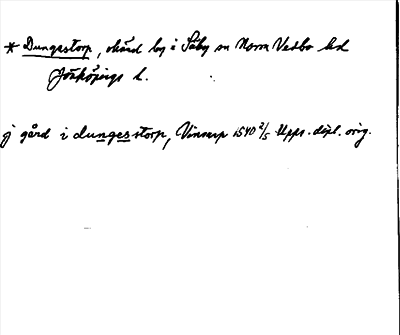 * Dungestorp, okänd by i Säby sn Norra Vedbo hd
Jönköpings l.
j gård i dungestorp, Vinserp 1540 2/5 Upps. dipl. orig.